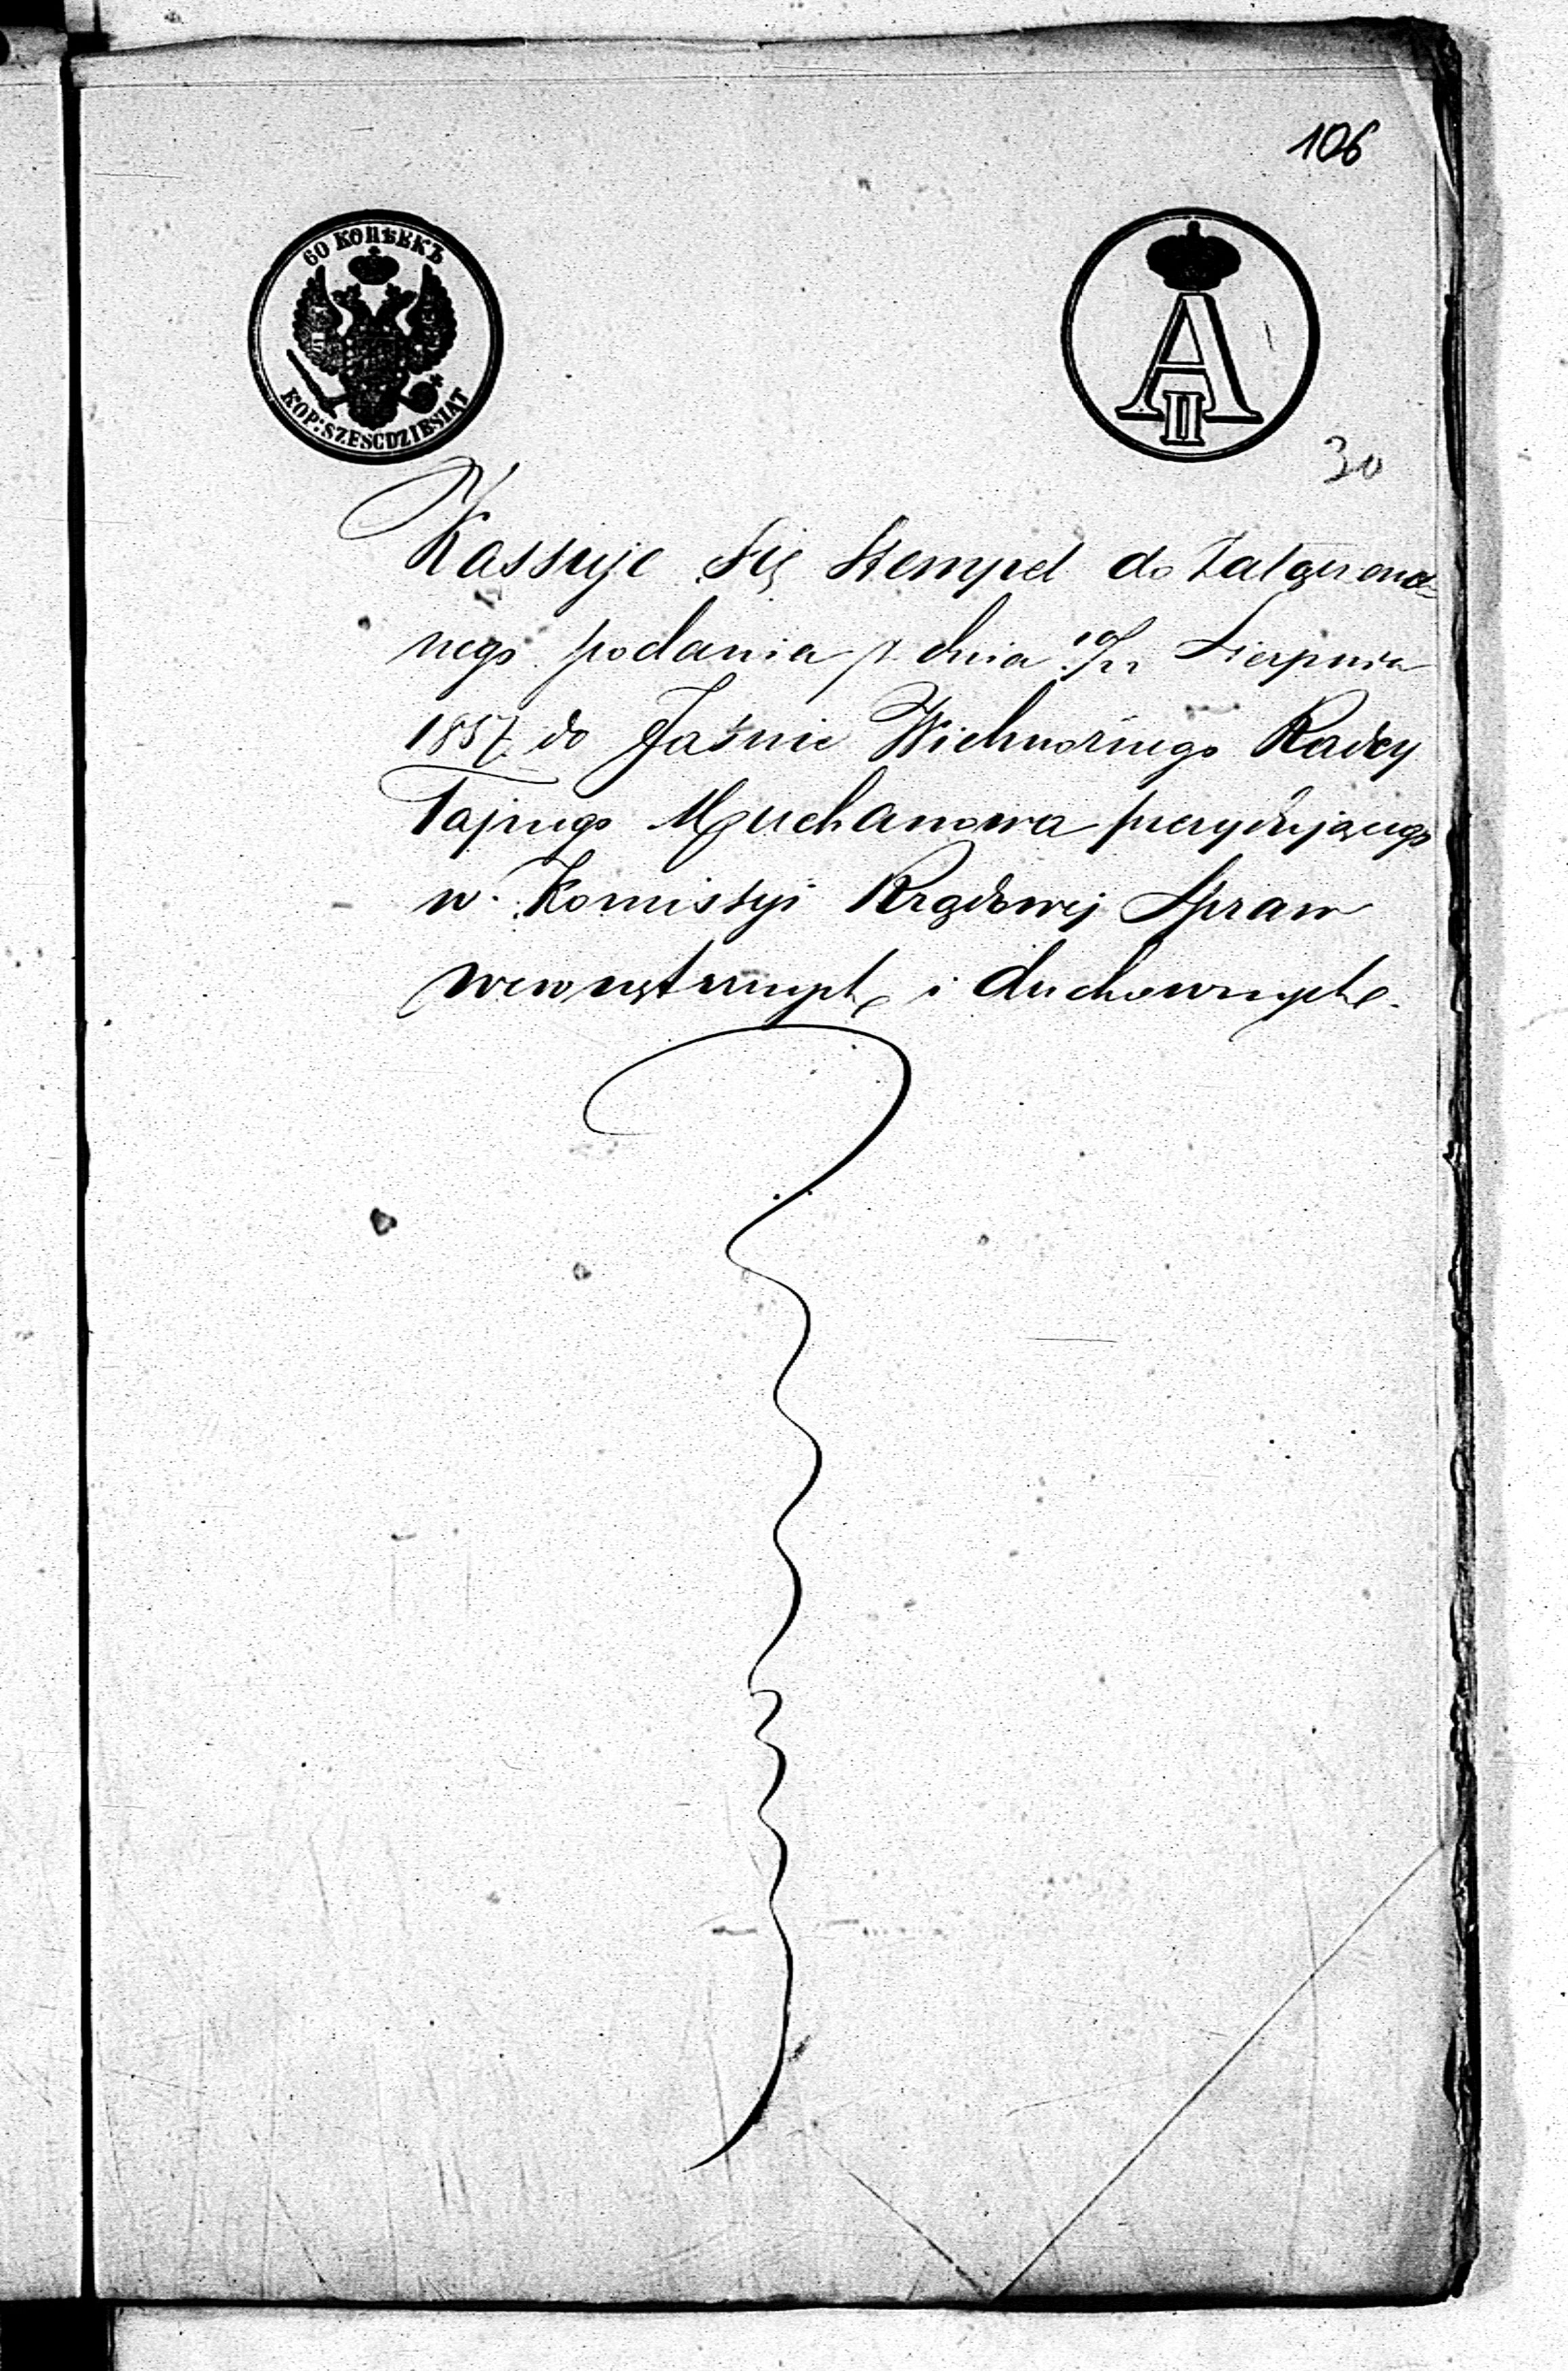 106
60 КОПѢЕКЪ
KOP: SZESCDZIESIAT
A II
30
Kassuje się Stempel do załączone-
nego podania z dnia 10/22 Sierpnia
1857 do Jaśnie Wielmożnego Radcy
Tajnego Muchanowa prezydującego
w Komissyi Rządowej Spraw
wewnętrznych i duchownych.